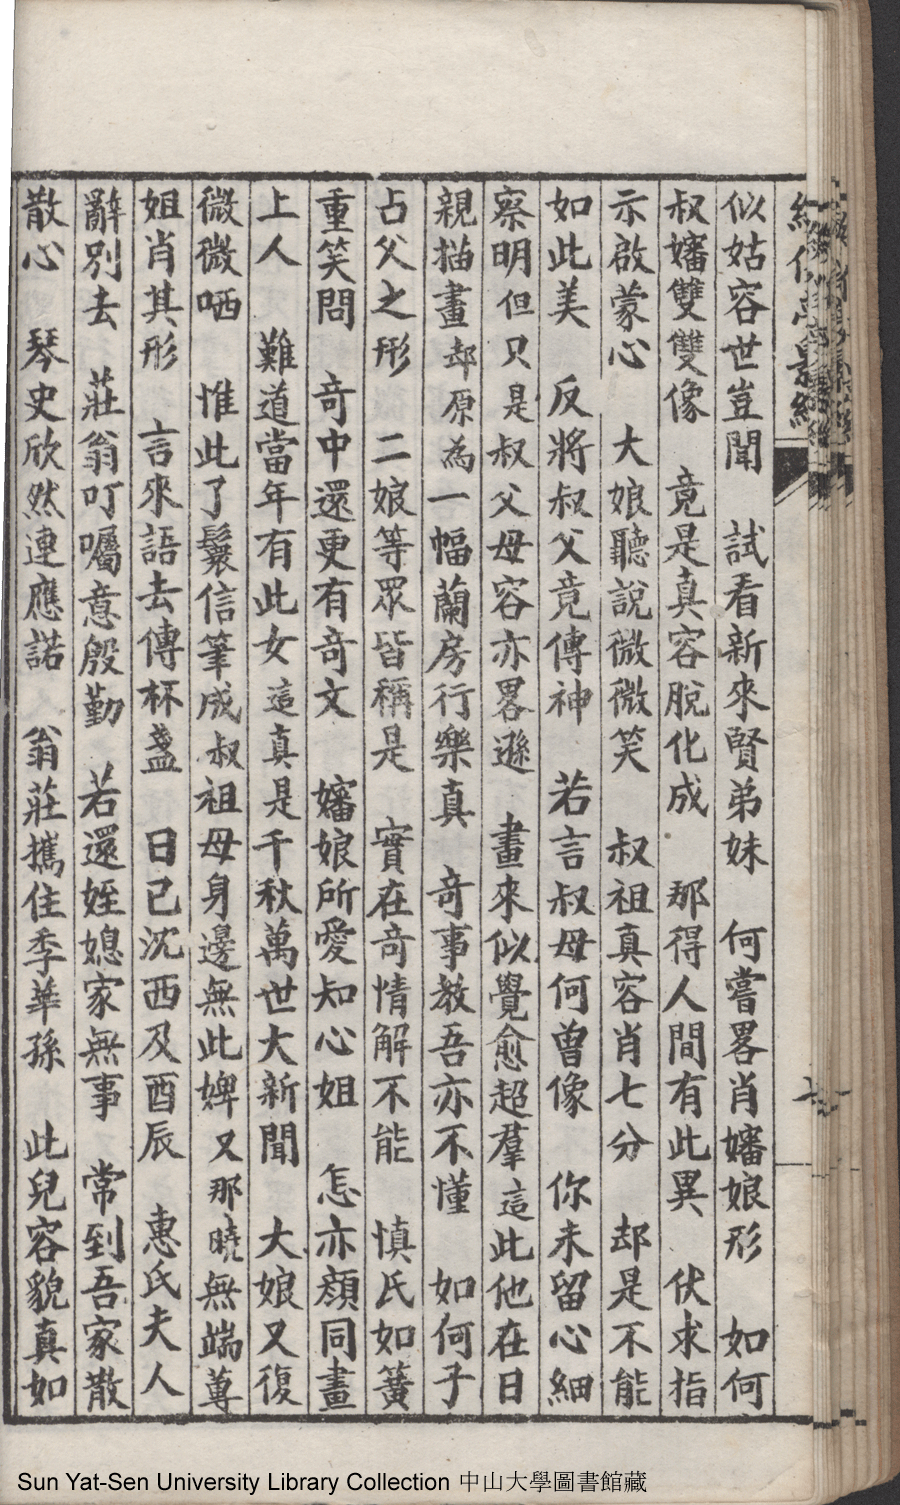 似姑容世豈聞　試看新來賢弟妹　何嘗畧肖嬸娘形　如何
叔嬸雙雙像　竟是真容脫化成　那得人間有此異　伏求指
示啟蒙心　大娘聽說微微笑　叔祖真容肖七分　却是不能
如此美　反將叔父竟傳神　若言叔母何曾像　你未留心細
察明但只是叔父母容亦畧遜　畫來似覺愈超羣這此他在日
親描畫却原為一幅蘭房行樂真　奇事教吾亦不懂　如何子
占父之形　二娘等眾皆稱是　實在奇情解不能　慎氏如簧
重笑問　奇中還更有奇文　嬸娘所愛知心姐　怎亦顏同畫
上人　難道當年有此女這真是千秋萬世大新聞　大娘又復
微微哂　惟此了鬟信筆成叔祖母身邊無此婢又那曉無端蕁
姐肖其形　言來語去傳杯盞　日已沈西及酉辰　惠氏夫人
辭別去　莊翁叮囑意殷勤　若還姪媳家無事　常到吾家散
散心　琴史欣然連應諾　翁莊攜住季華孫　此兒容貌真如
Sun Yat-Sen University Library Collection 中山大學圖書館藏